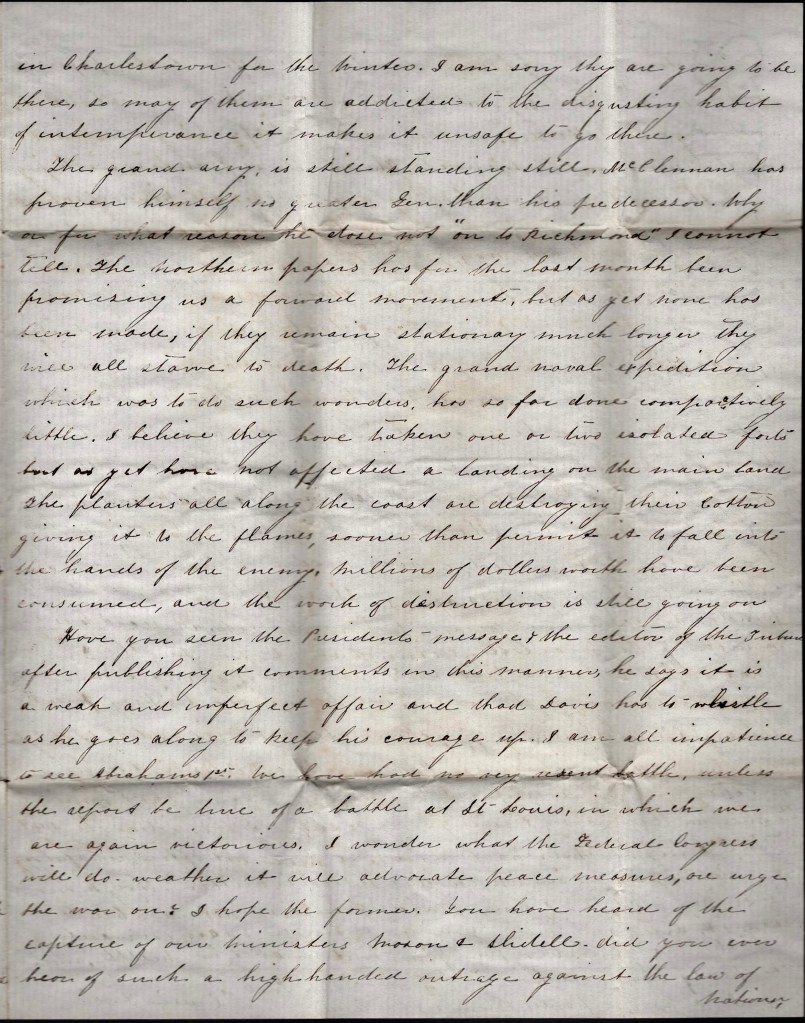 in Charlestown for the Winter. I am sorry they are going to be
there, so may of them are addicted to the disgusting habit
of intemperance it makes it unsafe to go there.
The grand army, is still standing still. McClennan has
proven himself no greater Gen. than his predecessor. Why
or for what reason he dose not "on to Richmond" I cannot
tell. The Northern papers has for the last month been
promising us a forward movement, but as yet none has
been made, if they remain stationary much longer they
will all starve to death. The grand naval expedition
which was to do such wonders, has so far done comparatively
little. I believe they have taken one or two isolated forts
but as yet have not affected a landing on the main land
The planters all along the coast are destroying their Cotton
giving it to the flames, sooner than permit it to fall into
the hands of the enemy. Millions of dollars worth have been
consumed, and the work of destruction is still going on
Have you seen the Presidents message & the editor of the Tribune
after publishing it comments in this manner, he says it is
a weak and imperfect affair and that Davis has to whistle
as he goes along to keep his courage up. I am all impatience
to see Abrahams 1st. We have had no very resent battle, unless
the report be true of a battle at St Louis, in which we
are again victorious. I wonder what the Federal Congress
will do - weather it will advocate peace measures, or urge
the war on? I hope the former. You have heard of the
capture of our Ministers Mason & Slidell - did you ever
hear of such a high handed outrage against the law of
Nations,